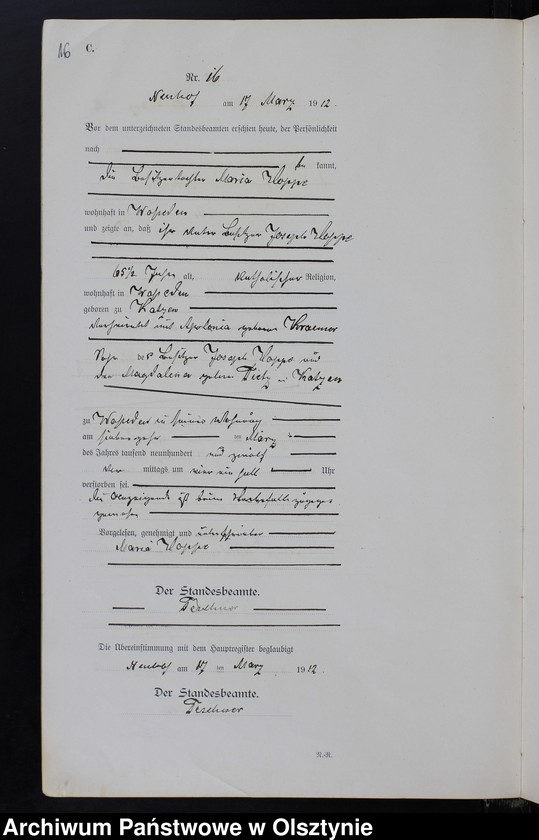 16 C.
Nr. 16
Neuhof am 17 März 1912
Vor dem unterzeichneten Standesbeamten erschien heute, der Persönlichkeit
nach
be kannt,
die Besitzertochter Maria Hoppe
wohnhaft in
und zeigte an, daß ihr Vater Besitzer Joseph Hoppe
65½ Jahre alt, katholischer Religion,
wohnhaft in
geboren zu Katzen
verheiratet mit Apolonia geborene Kraemer
Sohn des Besitzer Joseph Hoppe und
der Magdalena geborene in Katzen
zu in seiner Wohnung
am siebzehn im März
des Jahres tausend neunhundert und zwölf
vor mittags um vier ein halb Uhr
verstorben sei.
die Anzeigende ist beim Sterbefalle zugegen
gewesen
Vorgelesen, genehmigt und unterschrieben
Maria Hoppe
Der Standesbeamte.
Teschner
Die Übereinstimmung mit dem Hauptregister beglaubigt
Neuhof am 17 im März 1912
Der Standesbeamte.
Teschner
R.-R.
Archiwum Państwowe w Olsztynie